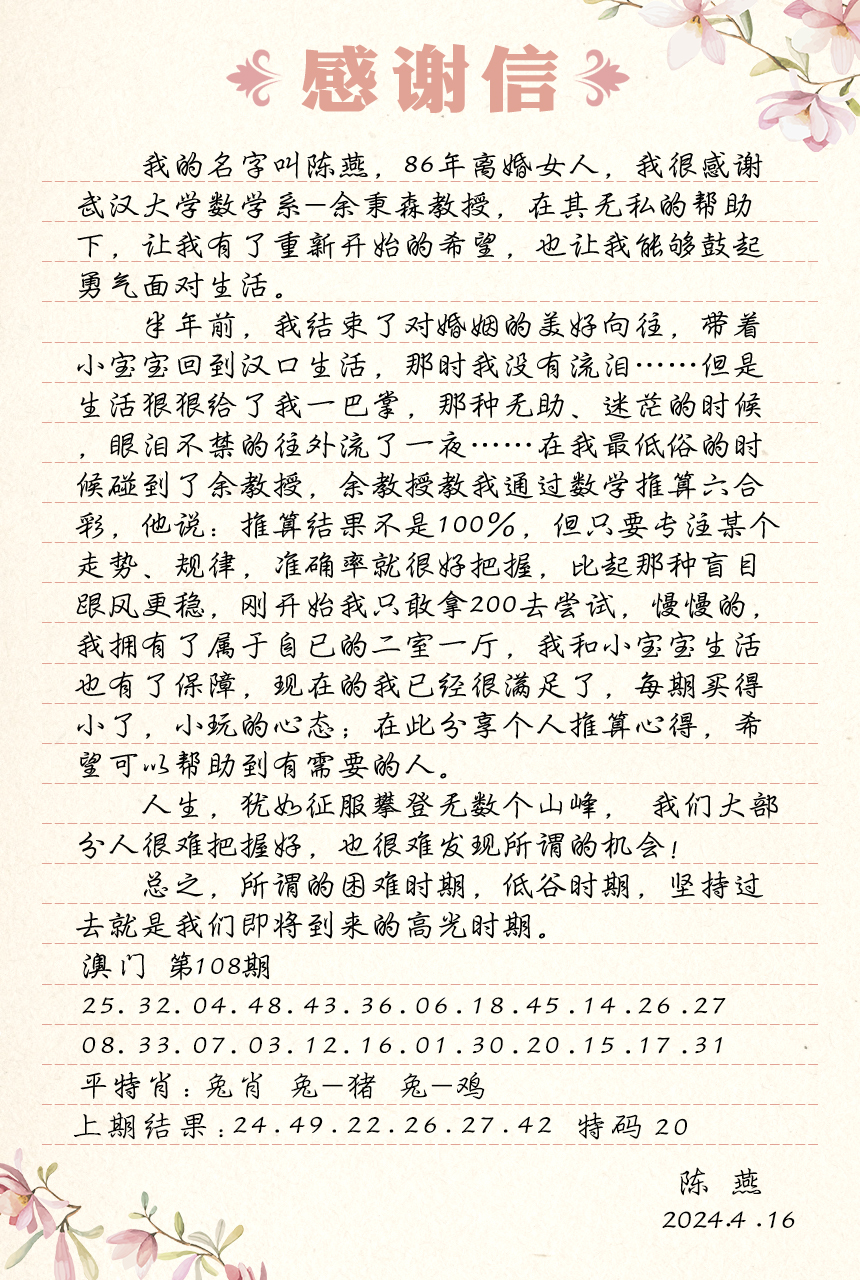 感谢信
我的名字叫陈燕，86年离婚女人，我很感谢
武汉大学数学系—余秉森教授，在其无私的帮助
下，让我有了重新开始的希望，也让我能够鼓起
勇气面对生活。
半年前，我结束了对婚姻的美好向往，带着
小宝宝回到汉口生活，那时我没有流泪……但是
生活狠狠给了我一巴掌，那种无助、迷茫的时候
，眼泪不禁的往外流了一夜……在我最低俗的时
候碰到了余教授，余教授教我通过数学推算六合
彩，他说：推算结果不是100%，但只要专注某个
走势、规律，准确率就很好把握，比起那种盲目
跟风更稳，刚开始我只敢拿200去尝试，慢慢的，
我拥有了属于自已的二室一厅，我和小宝宝生活
也有了保障，现在的我已经很满足了，每期买得
小了，小玩的心态；在此分享个人推算心得，希
望可以帮助到有需要的人。
人生，犹如征服攀登无数个山峰， 我们大部
分人很难把握好，也很难发现所谓的机会！
总之，所谓的困难时期，低谷时期，坚持过
去就是我们即将到来的高光时期。
澳门 第108期
25.32.04.48.43.36.06.18.45.14.26.27
08.33.07.03.12.16.01.30.20.15.17.31
平特肖：兔肖 兔—猪 兔—鸡
上期结果：24.49.22.26.27.42 特码 20
陈 燕
2024.4.16